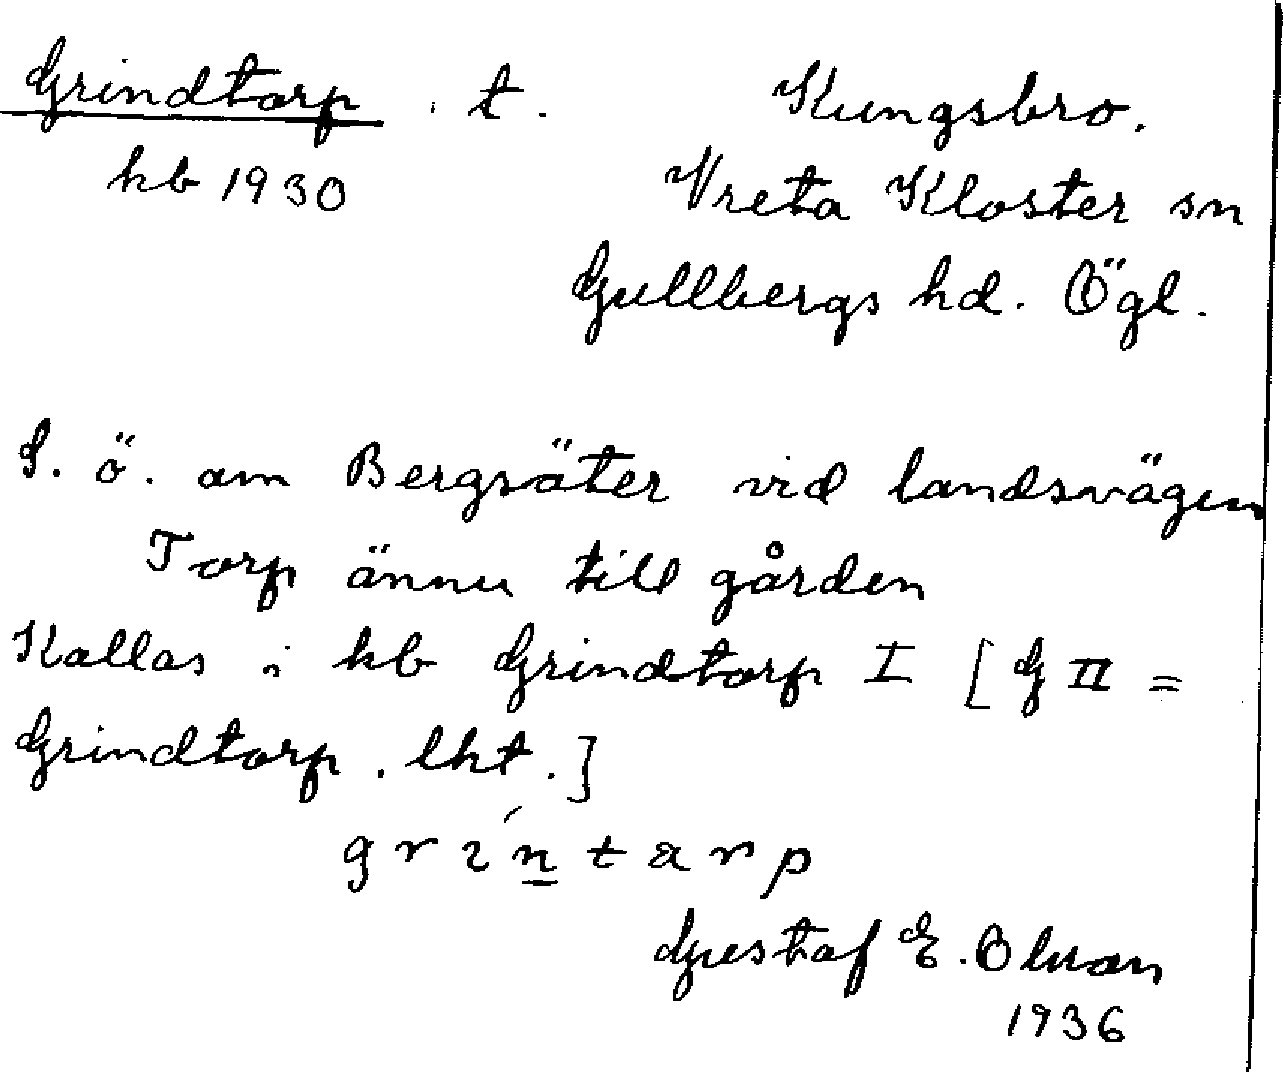 Grindtorp . t. Kungsbro.
kb 1930 Vreta Kloster sn
Gullbergs hd. Ögl.
S. ö. om Bergsäter vid landsvägen
Torp ännu till gården
Kallas i kb Grindtorp I [G II =
Grindtorp . lht.]
grińtarp
Gustaf E. Olsson
1936